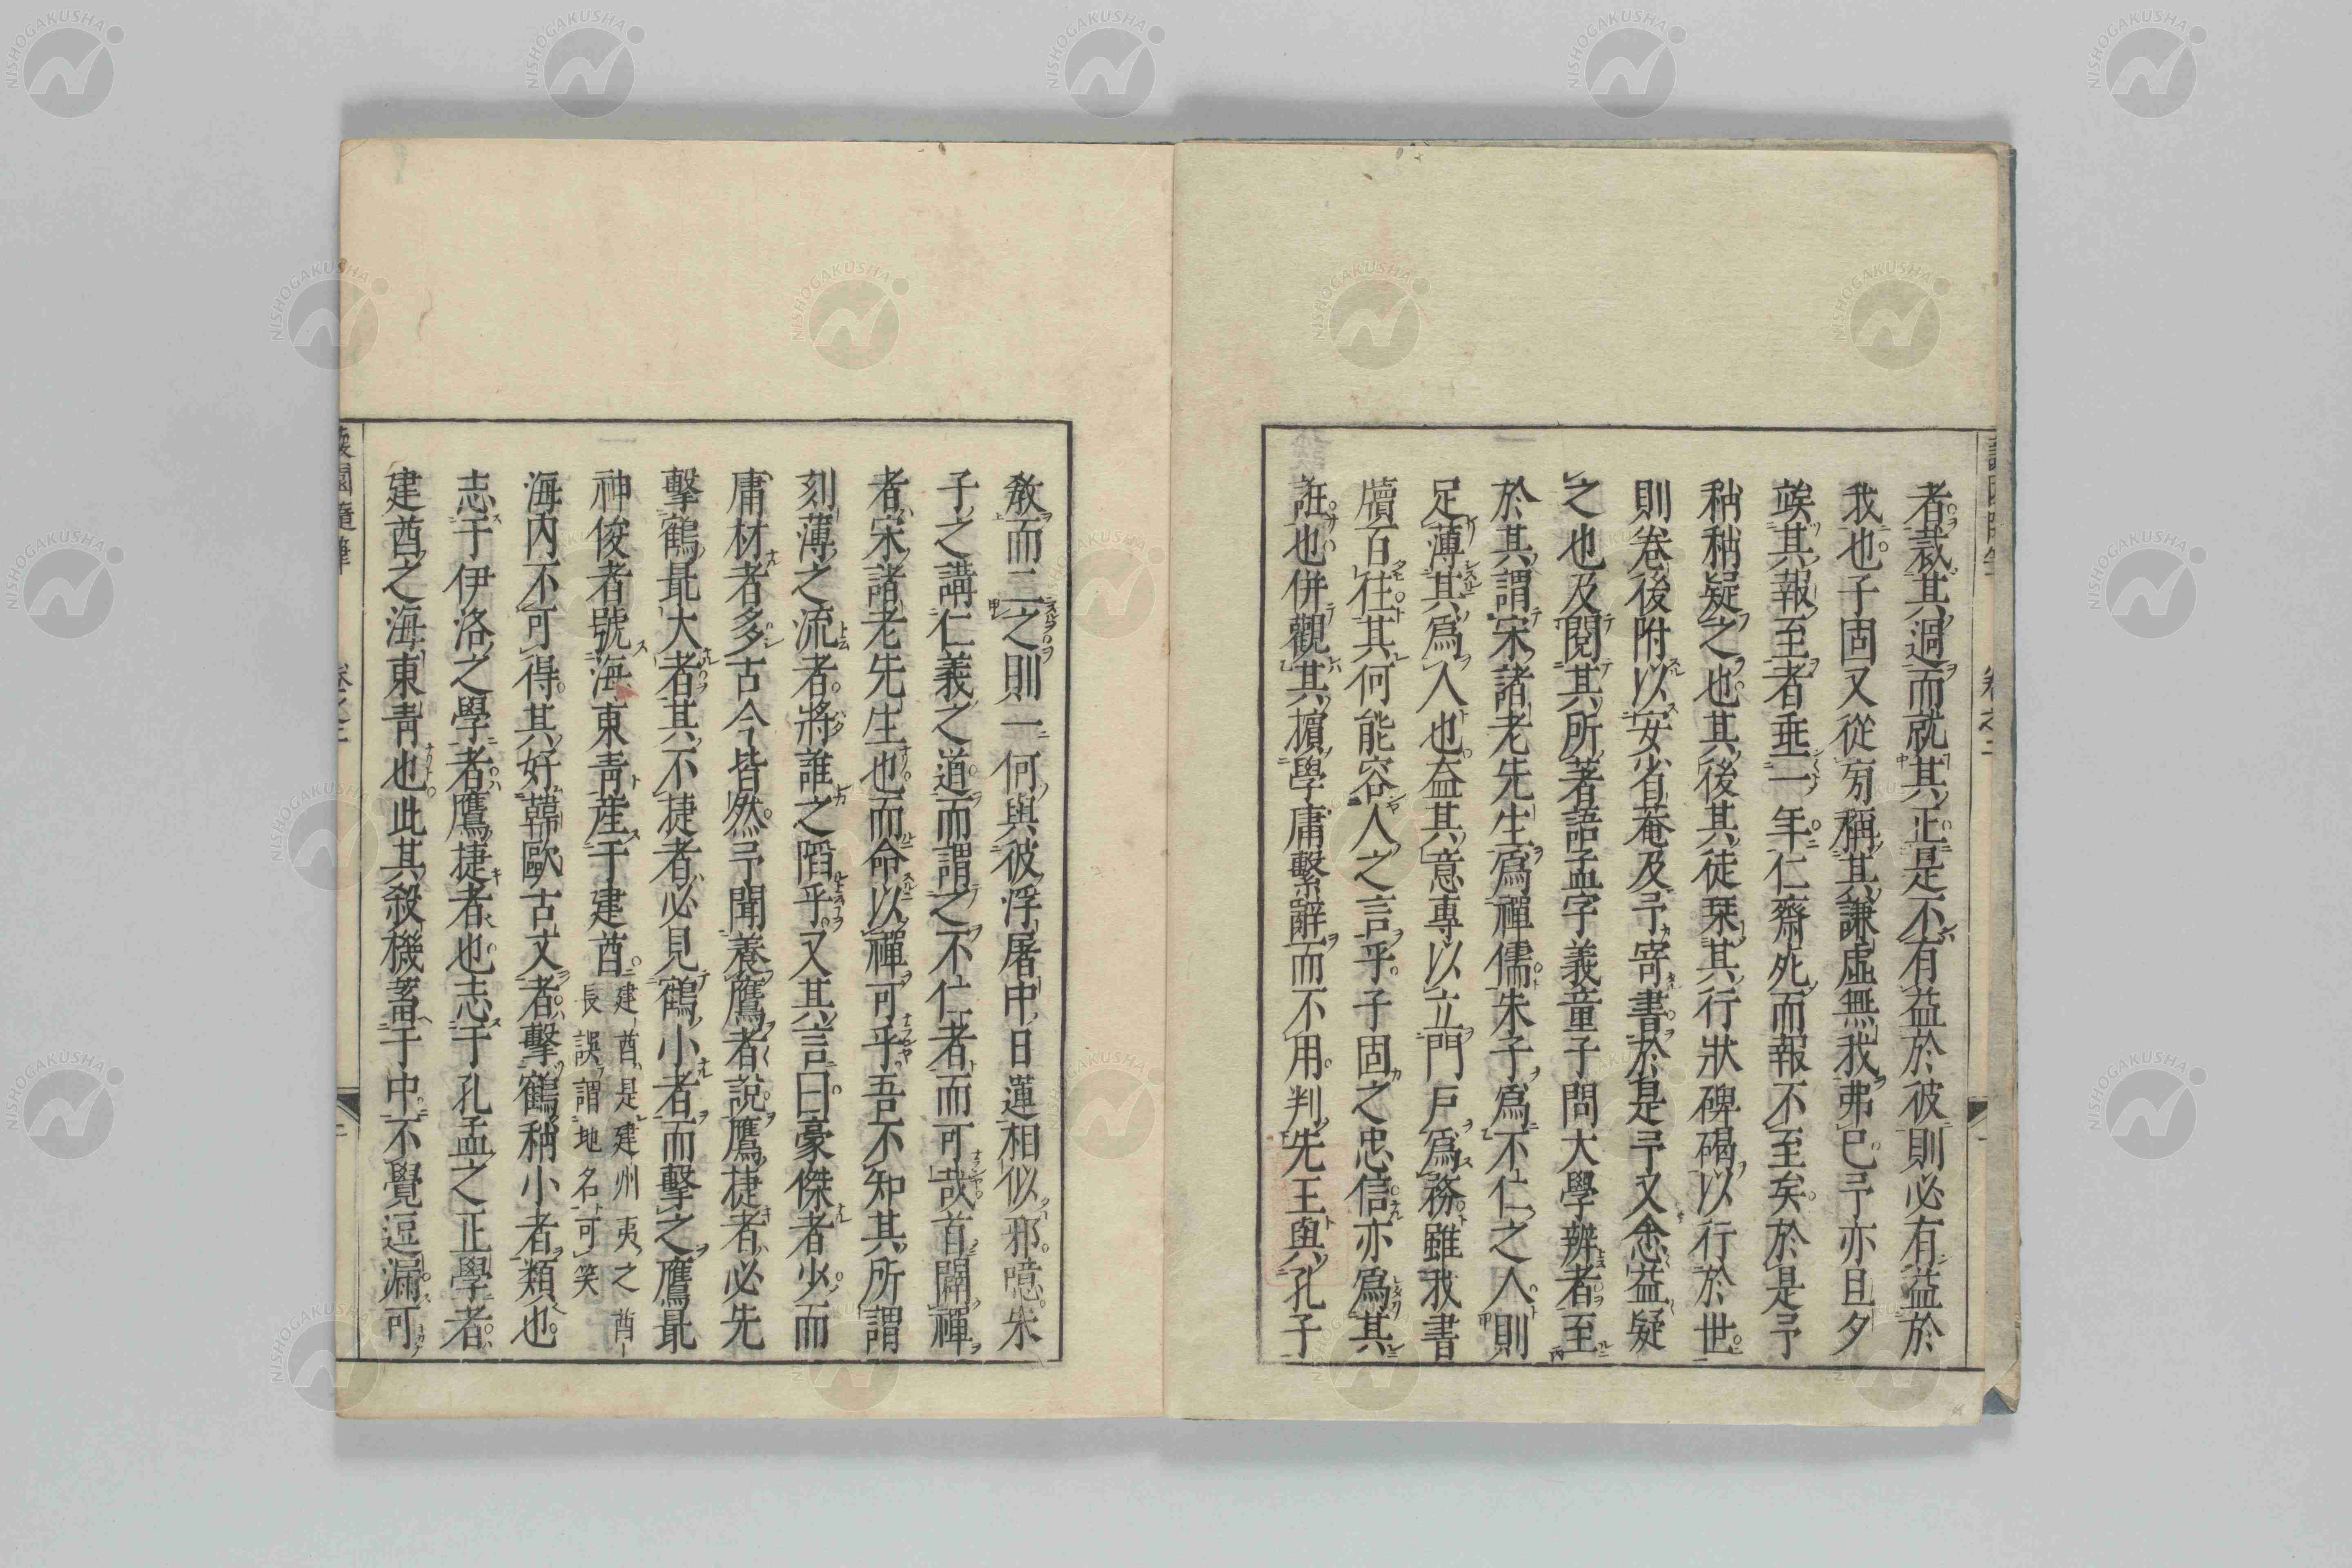 者裁其過而就其正是不有益於彼則必有益於
我也子固又從旁稱其謙虛無我弗已予亦旦夕
竢其報至者垂一年仁齋死而報不至矣於是予
稍稍疑之也其後其徒琹其行狀碑碣以行於世
則卷後附以安省菴及予寄書於是予又悆益疑
之也及閱其所著語孟字義童子問大學辨者至
於其謂宋諸老先生爲禪儒朱子爲不仁之人則
足薄其爲人也益其意專以立門戶爲務雖我書
牘百往其何能容人之言乎子固之忠信亦爲其
誑也併觀其擯學庸繫辭而不用判先王與孔子
敎而二之則一何與彼浮屠中日蓮相似邪噫朱
子之講仁義之道而謂之不仁者而可哉首闢禪
者宋諸老先生也而命以禪可乎吾不知其所謂
刻薄之流者將誰之謟乎又其言曰豪傑者少而
庸材者多古今皆然予聞養鷹者說鷹捷者必先
擊鶴最大者其不捷者必見鶴小者而擊之鷹最
神俊者號海東靑産于建酋建酋是建州夷之酋長誤謂地名可笑
海內不可得其好韓歐古文者擊鶴稍小者類也
志于伊洛之學者鷹捷者也志于孔孟之正學者
建酋之海東靑也此其殺機蓄于中不覺逗漏可
園隨筆 卷之二
NISHOGAKUSHA